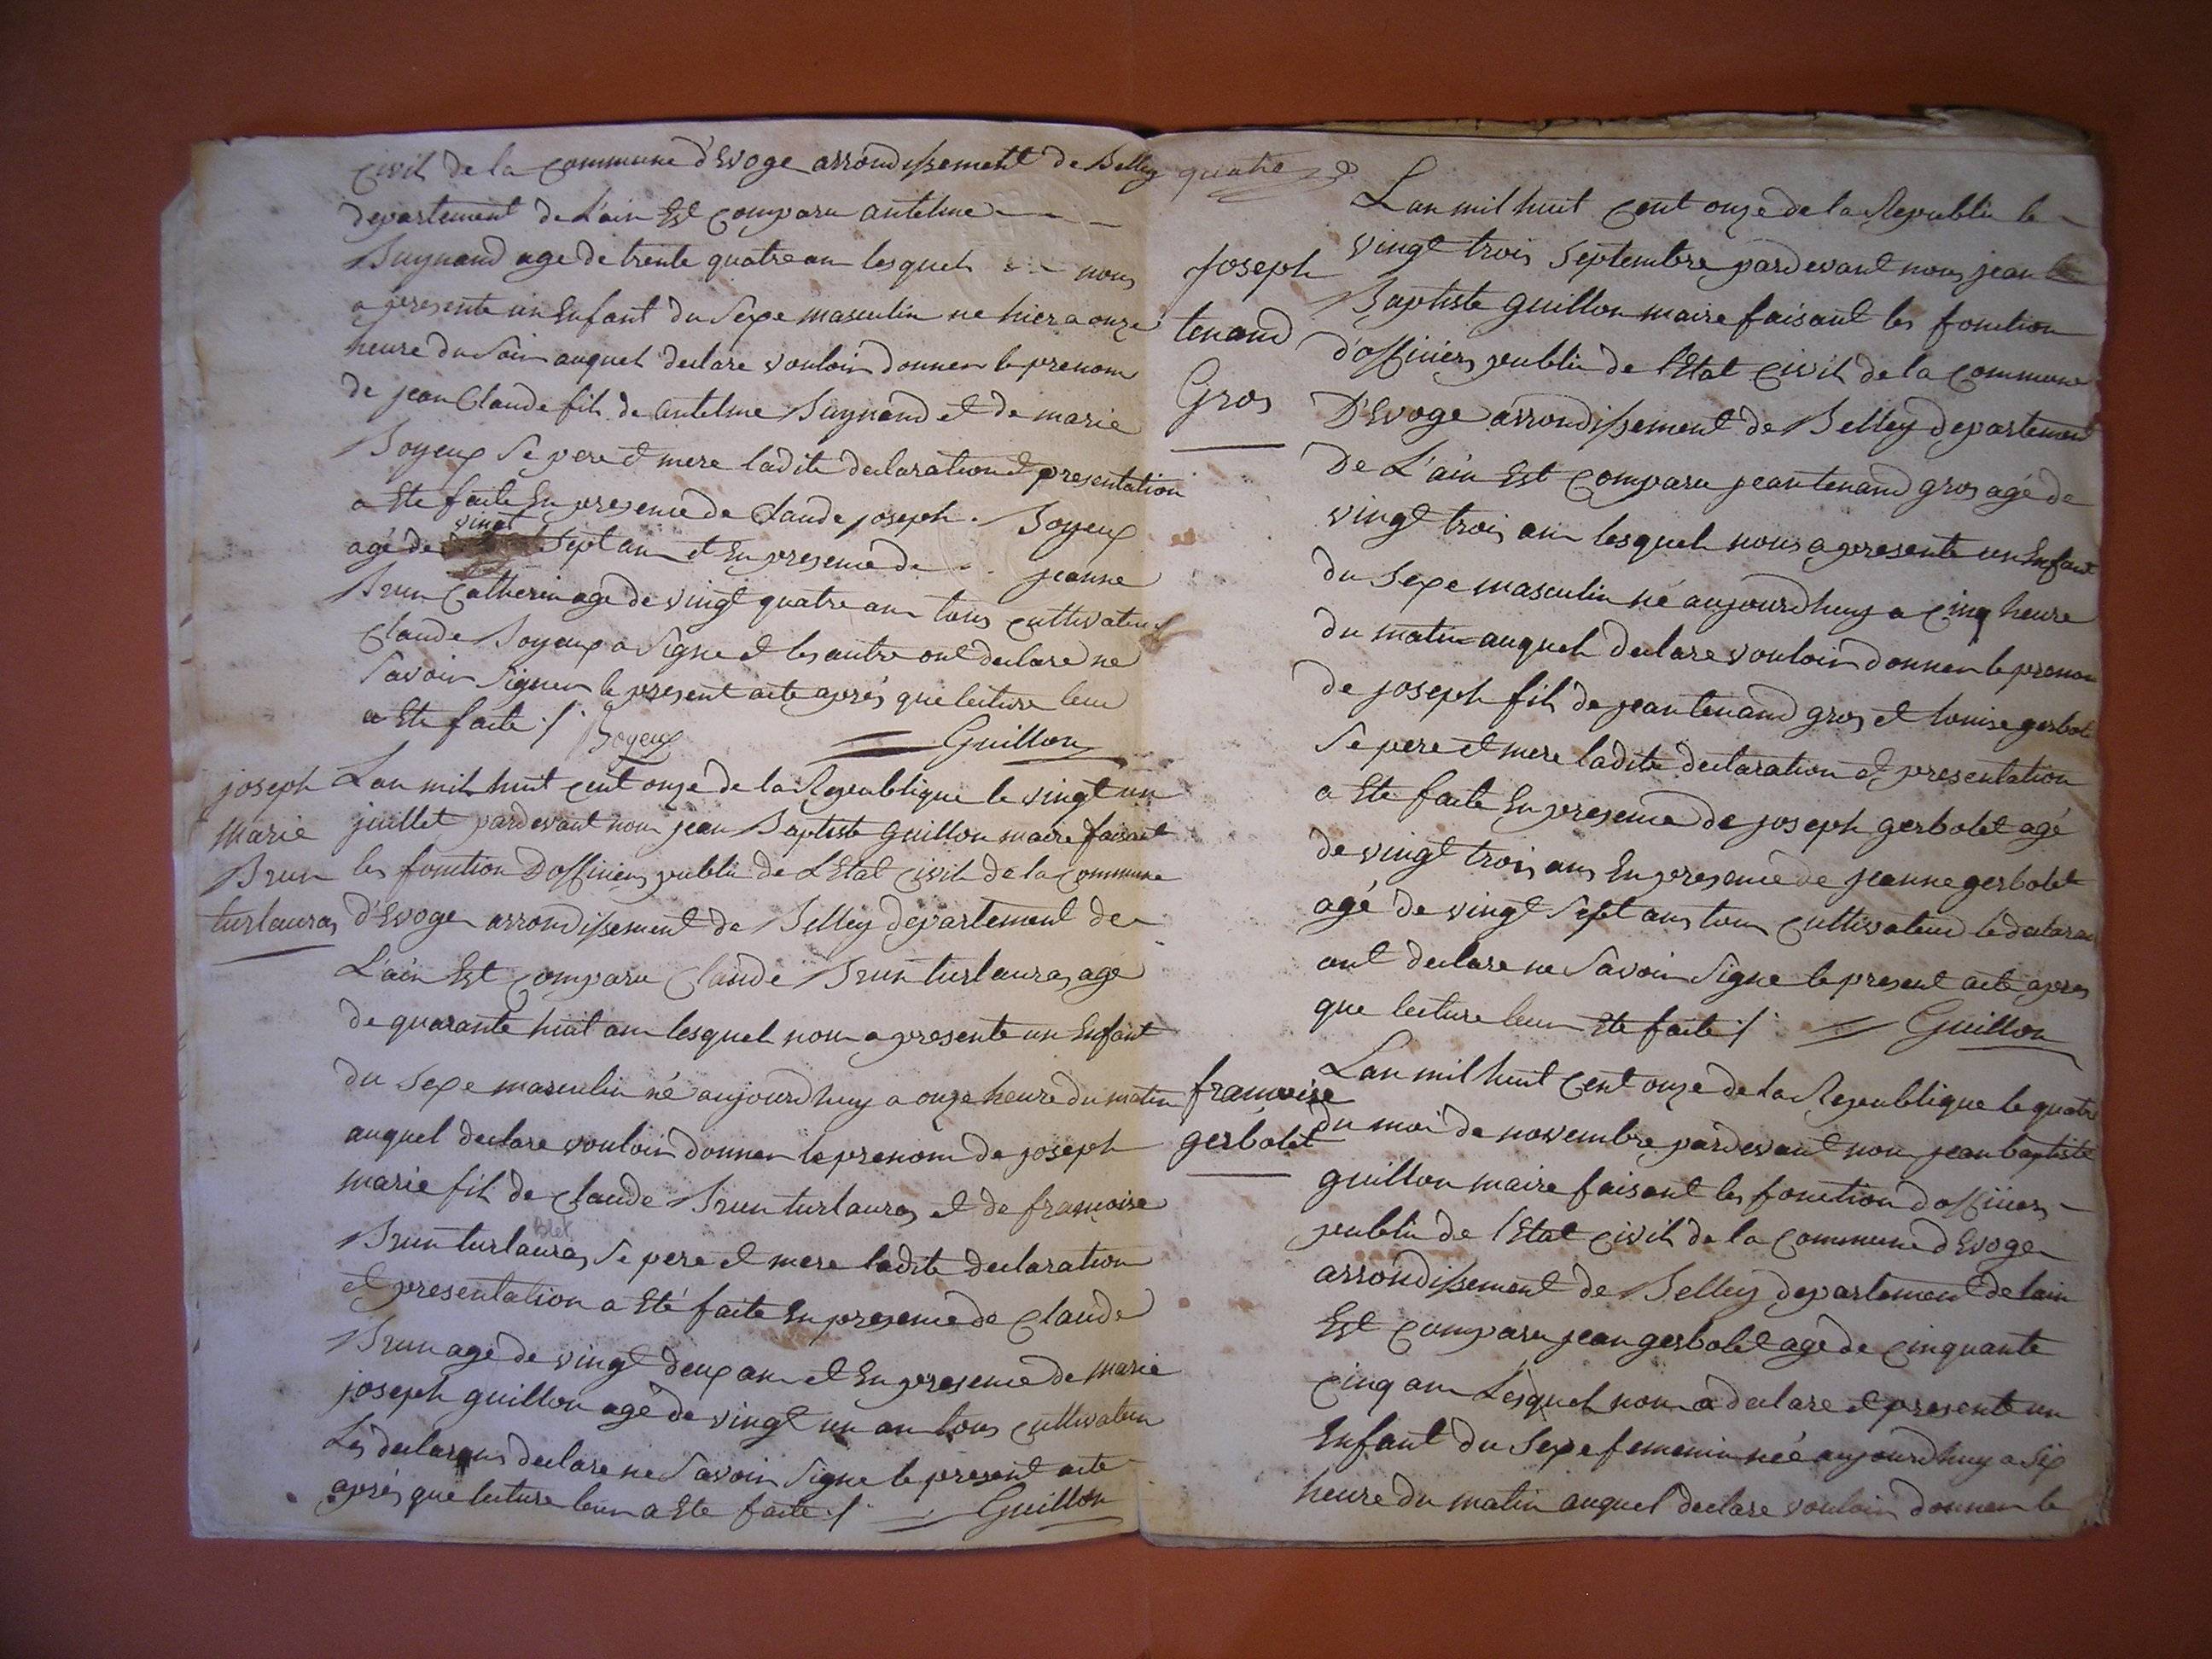 civil de la commune d'Evoge arrondissement de Belley
departement de L'ain Est comparu antelme
Suynand age de trente quatre an lesquel nous
a presente un Enfant du Sexe masculin ne hier a onze
heure du Soir auquel declare vouloir donner le prenom
de jean Claude fils de antelme Suynand et de marie
Joyeux Se pere et mere ladite declaration et presentation
a Ete faite En presence de Claude joseph Joyeux
agé de vingt Sept an et En presence de jeanne
Brun Catherin age de vingt quatre an tous cultivateur
Claude Joyeux a Signe et les autre ont declare ne
Savoir Signer le present acte aprés que lecture leur
a Ete faite ./. Joyeux Guillon
joseph
marie
Brun
turlauras
Lan mil huit cent onze de la Republique le vingt un
juillet pardevant nou jean Baptiste Guillon maire faisant
les fonction Dofficier publie de LEtat civil de la commune
d'Evoge arrondissement de Belley departement de
L'ain Est comparu Claude Brun turlauras age
de quarante huit an lesquel nou a presente un Enfant
du Sexe masculin né aujourdhuy a onze heure du matin
auquel declare vouloir donner le prenom de joseph
marie fils de Claude Brun turlauras et de francoise
Blet
Brun turlauras Se pere et mere ladite declaration
et presentation a Eté faite En presence de Claude
Brun agé de vingt deux an et En presence de marie
joseph guillon agé de vingt un an tous cultivateur
Les declarans declare ne Savoir Signe le present acte
aprés que lecture leur a Ete faite ./. Guillon
quatre
Joseph
tenand
Gros
Lan mil huit cent onze de la Republi le
vingt trois Septembre pardevant nous jean
Baptiste guillon maire faisant les fonction
d'officier publie de l'Etat civil de la commune
D'Evoge arrondissement de Belley departement
De L'ain Est comparu jean tenand gros agé de
vingt trois an lesquel nous a presente un Enfant
du Sexe masculin né aujourdhuy a cinq heure
du matin auquel declare vouloir donner le prenom
de joseph fils de jean tenand gros et louise gerbolet
Se pere et mere ladite declaration et presentation
a Ete faite En presence de joseph gerbolet agé
de vingt trois ans En presence de jeanne gerbolet
agé de vingt Sept ans tous cultivateur le declaran
ont declare ne Savoir Signe le present acte apres
que lecture leur Ete faite ./. Guillon
francoise
gerbolet
Lan mil huit cent onze de la Republique le quatre
du moi de novembre pardevant nou jean baptiste
guillon maire faisant les fonction dofficier
publie de l'Etat civil de la commune d'Evoge
arrondissement de Belley departement de lain
Est comparu jean gerbolet agé de cinquante
cinq an Lesquel nou a declare et presente un
Enfant du Sexe femenin née aujourdhuy a Six
heure du matin auquel declare vouloir donner le